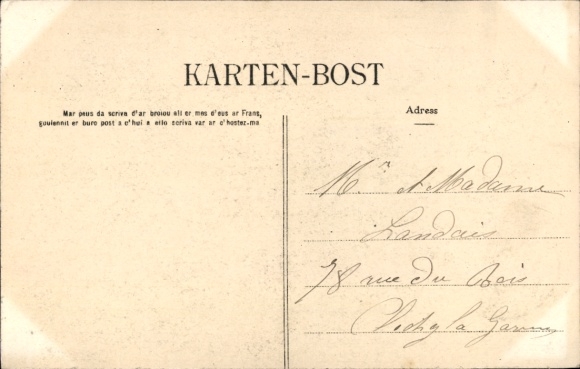 KARTEN-BOST
Mar peus da scriva d'ar broiou all er mes d'eus ar Frans,
gouiennit er buro post a c'hui a ello scriva var ar c'hostez-ma
Adress
Mr et Madame
Landais
78 rue du Bois
Clichy la Garenne